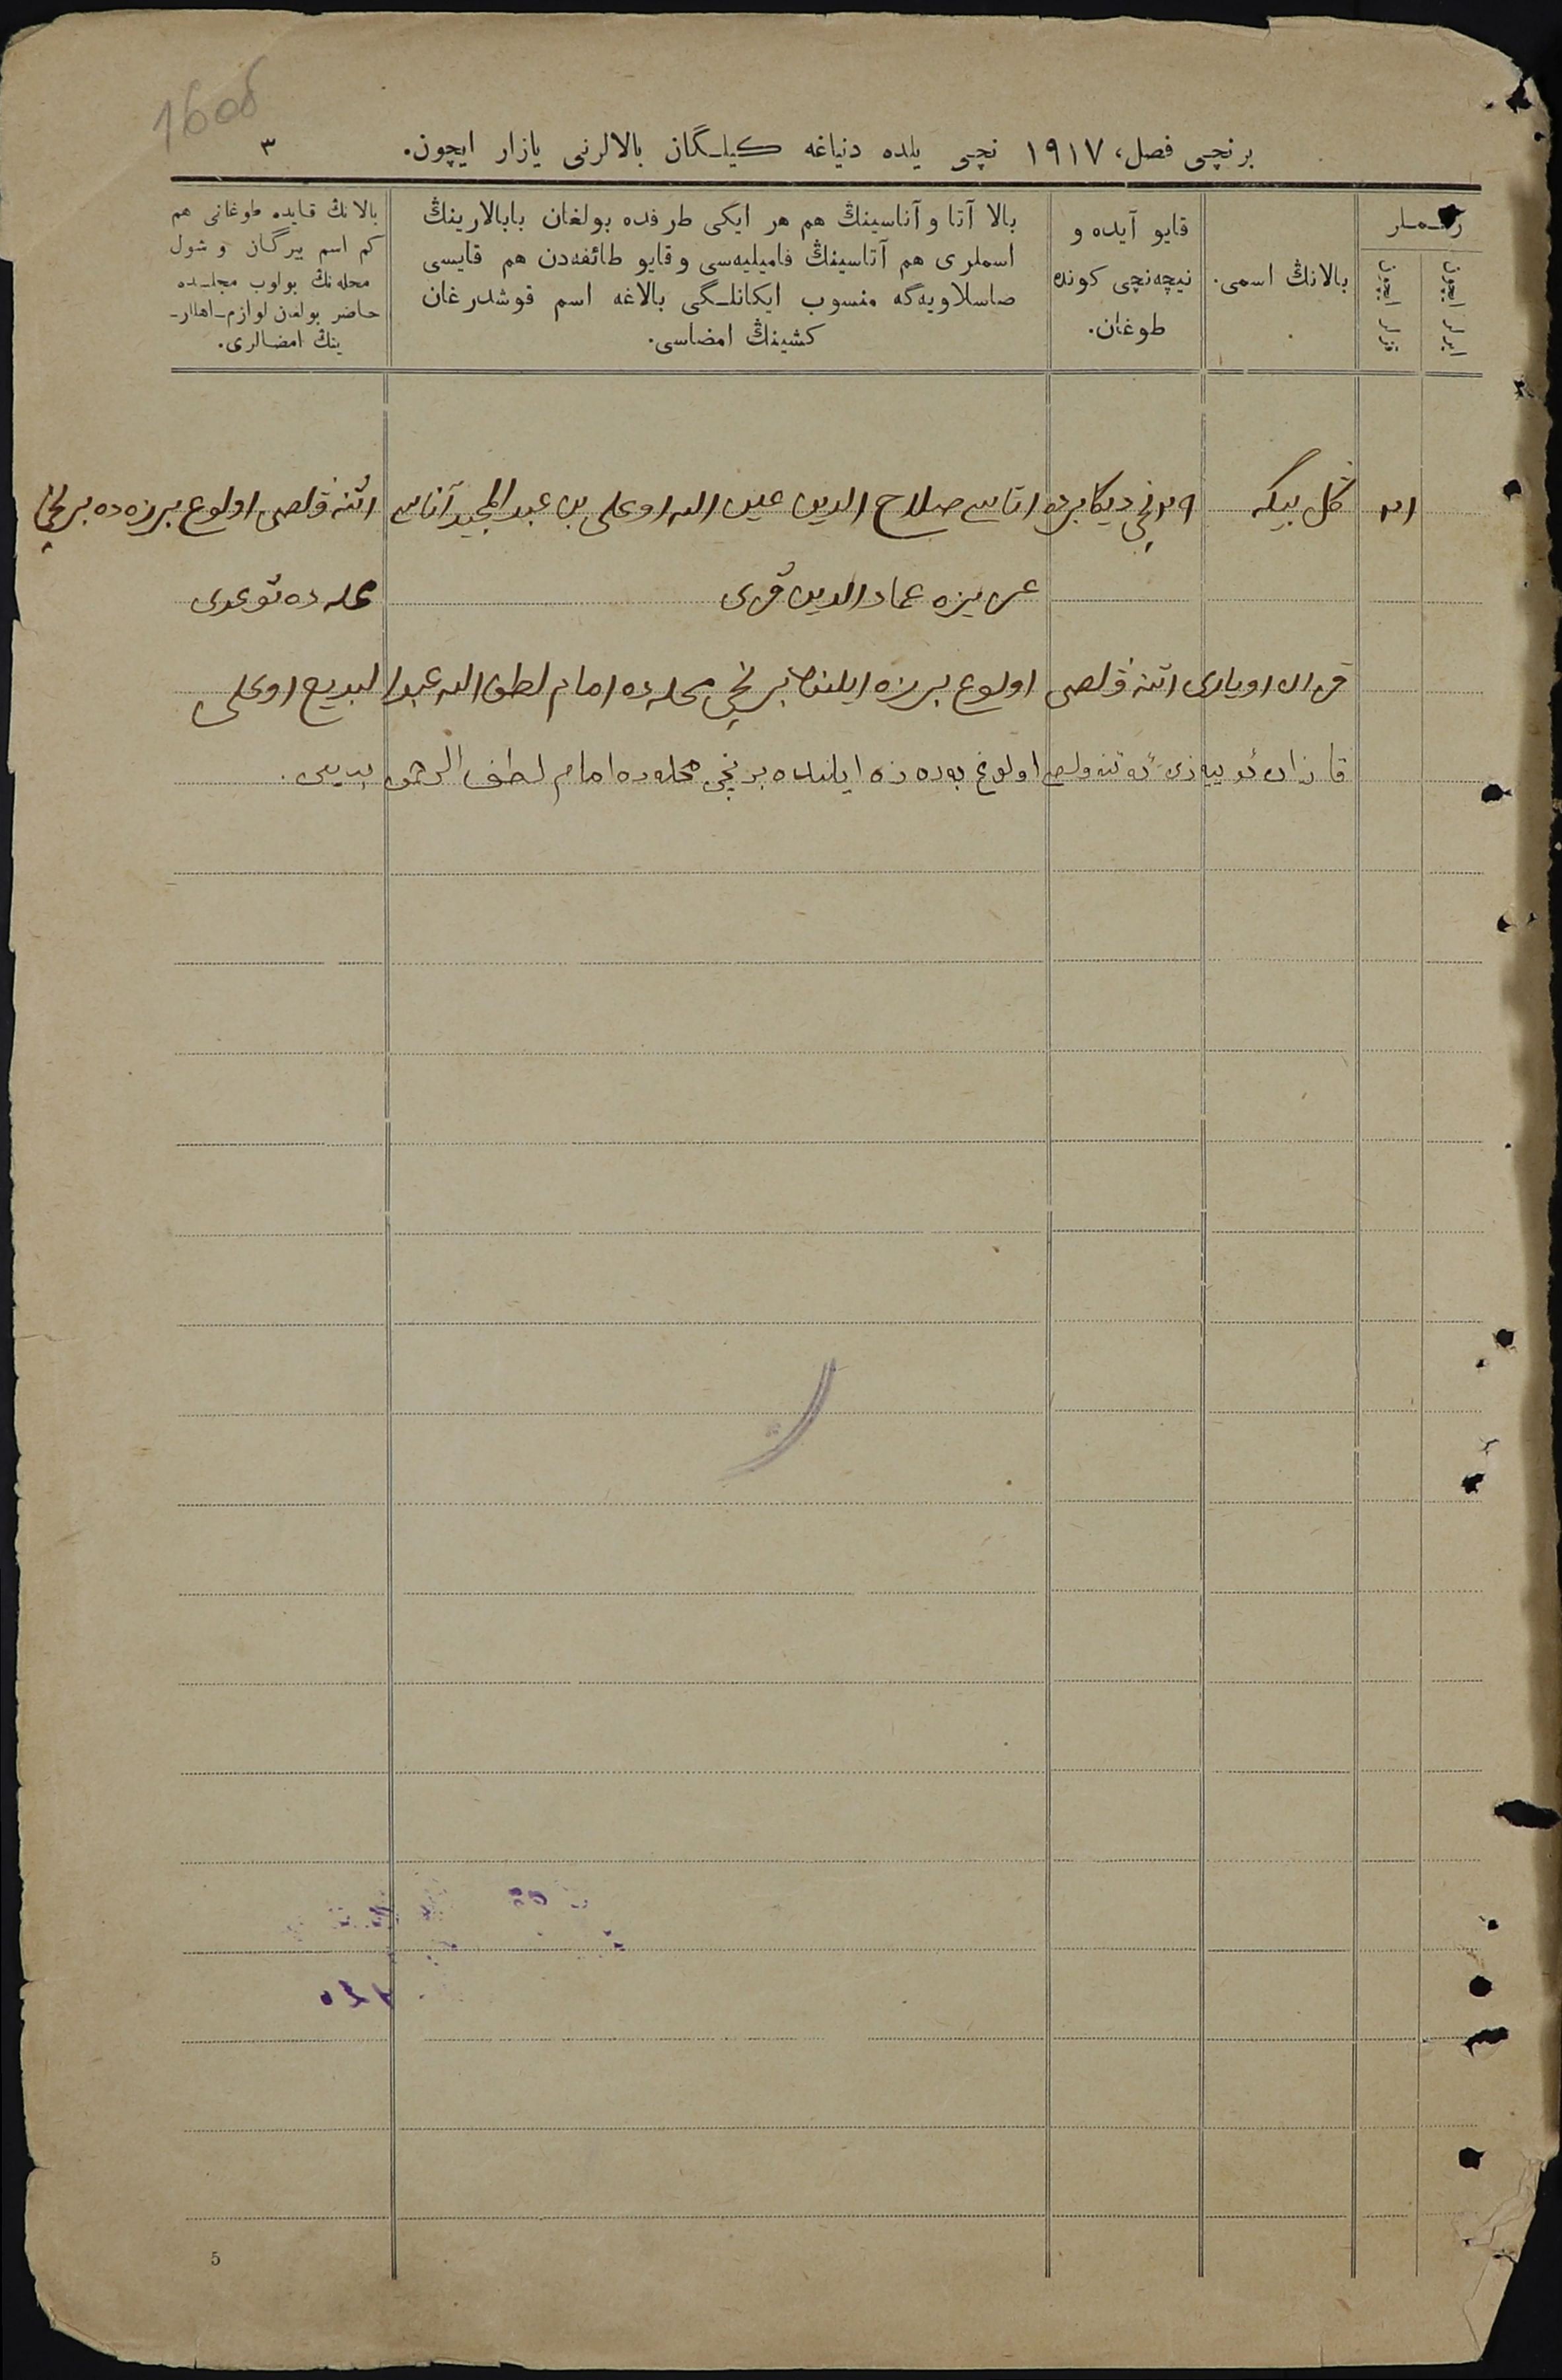 16 об
برنچی فصل، ١٩١٧ نچی یلده دنیاغه کیلـگان بالالرنی یازار ایچون.
٣
رقـمـلر
ایرلر ایچون
قزلر ایچون
بالانڭ اسمی.
قایو آیده و
نیچه‌نچی کونده
طوغان.
بالا آتا و آناسینڭ هم هر ایکی طرفده بولغان بابالارینڭ
اسملری هم آتاسینڭ فامیلیه‌سی و قایو طائفه‌دن هم قایسی
صاسلاویه‌گه منسوب ایکانلـگی بالاغه اسم قوشدرغان
کشینڭ امضاسی.
بالانڭ قایده طوغانی هم
کم اسم بیرگان و شول
محله‌نڭ بولوب مجلـده
حاضر بولغان لوازم‌ـاهللر‌ـ
ینڭ امضالری.
گل بیگه
دیکابرده اتاسی صلاح الدین عین الله اوغلی بن عبد المجید آناسی
اتنه ولصی اولوغ برزه ده برنچی
عزیزه عماد الدین قزی
محله ده توغدی
قزان اویازی اتنه ولصی اولوغ برزه ایلنده برنچی محله ده امام لطف الله عبد البدیع اوغلی
قازان ئویه‌زی ئه‌تنه ولصی اولوغ به‌ره‌زه ایلنده برنچی محله‌ده امام لطف الله بدیعی.
5